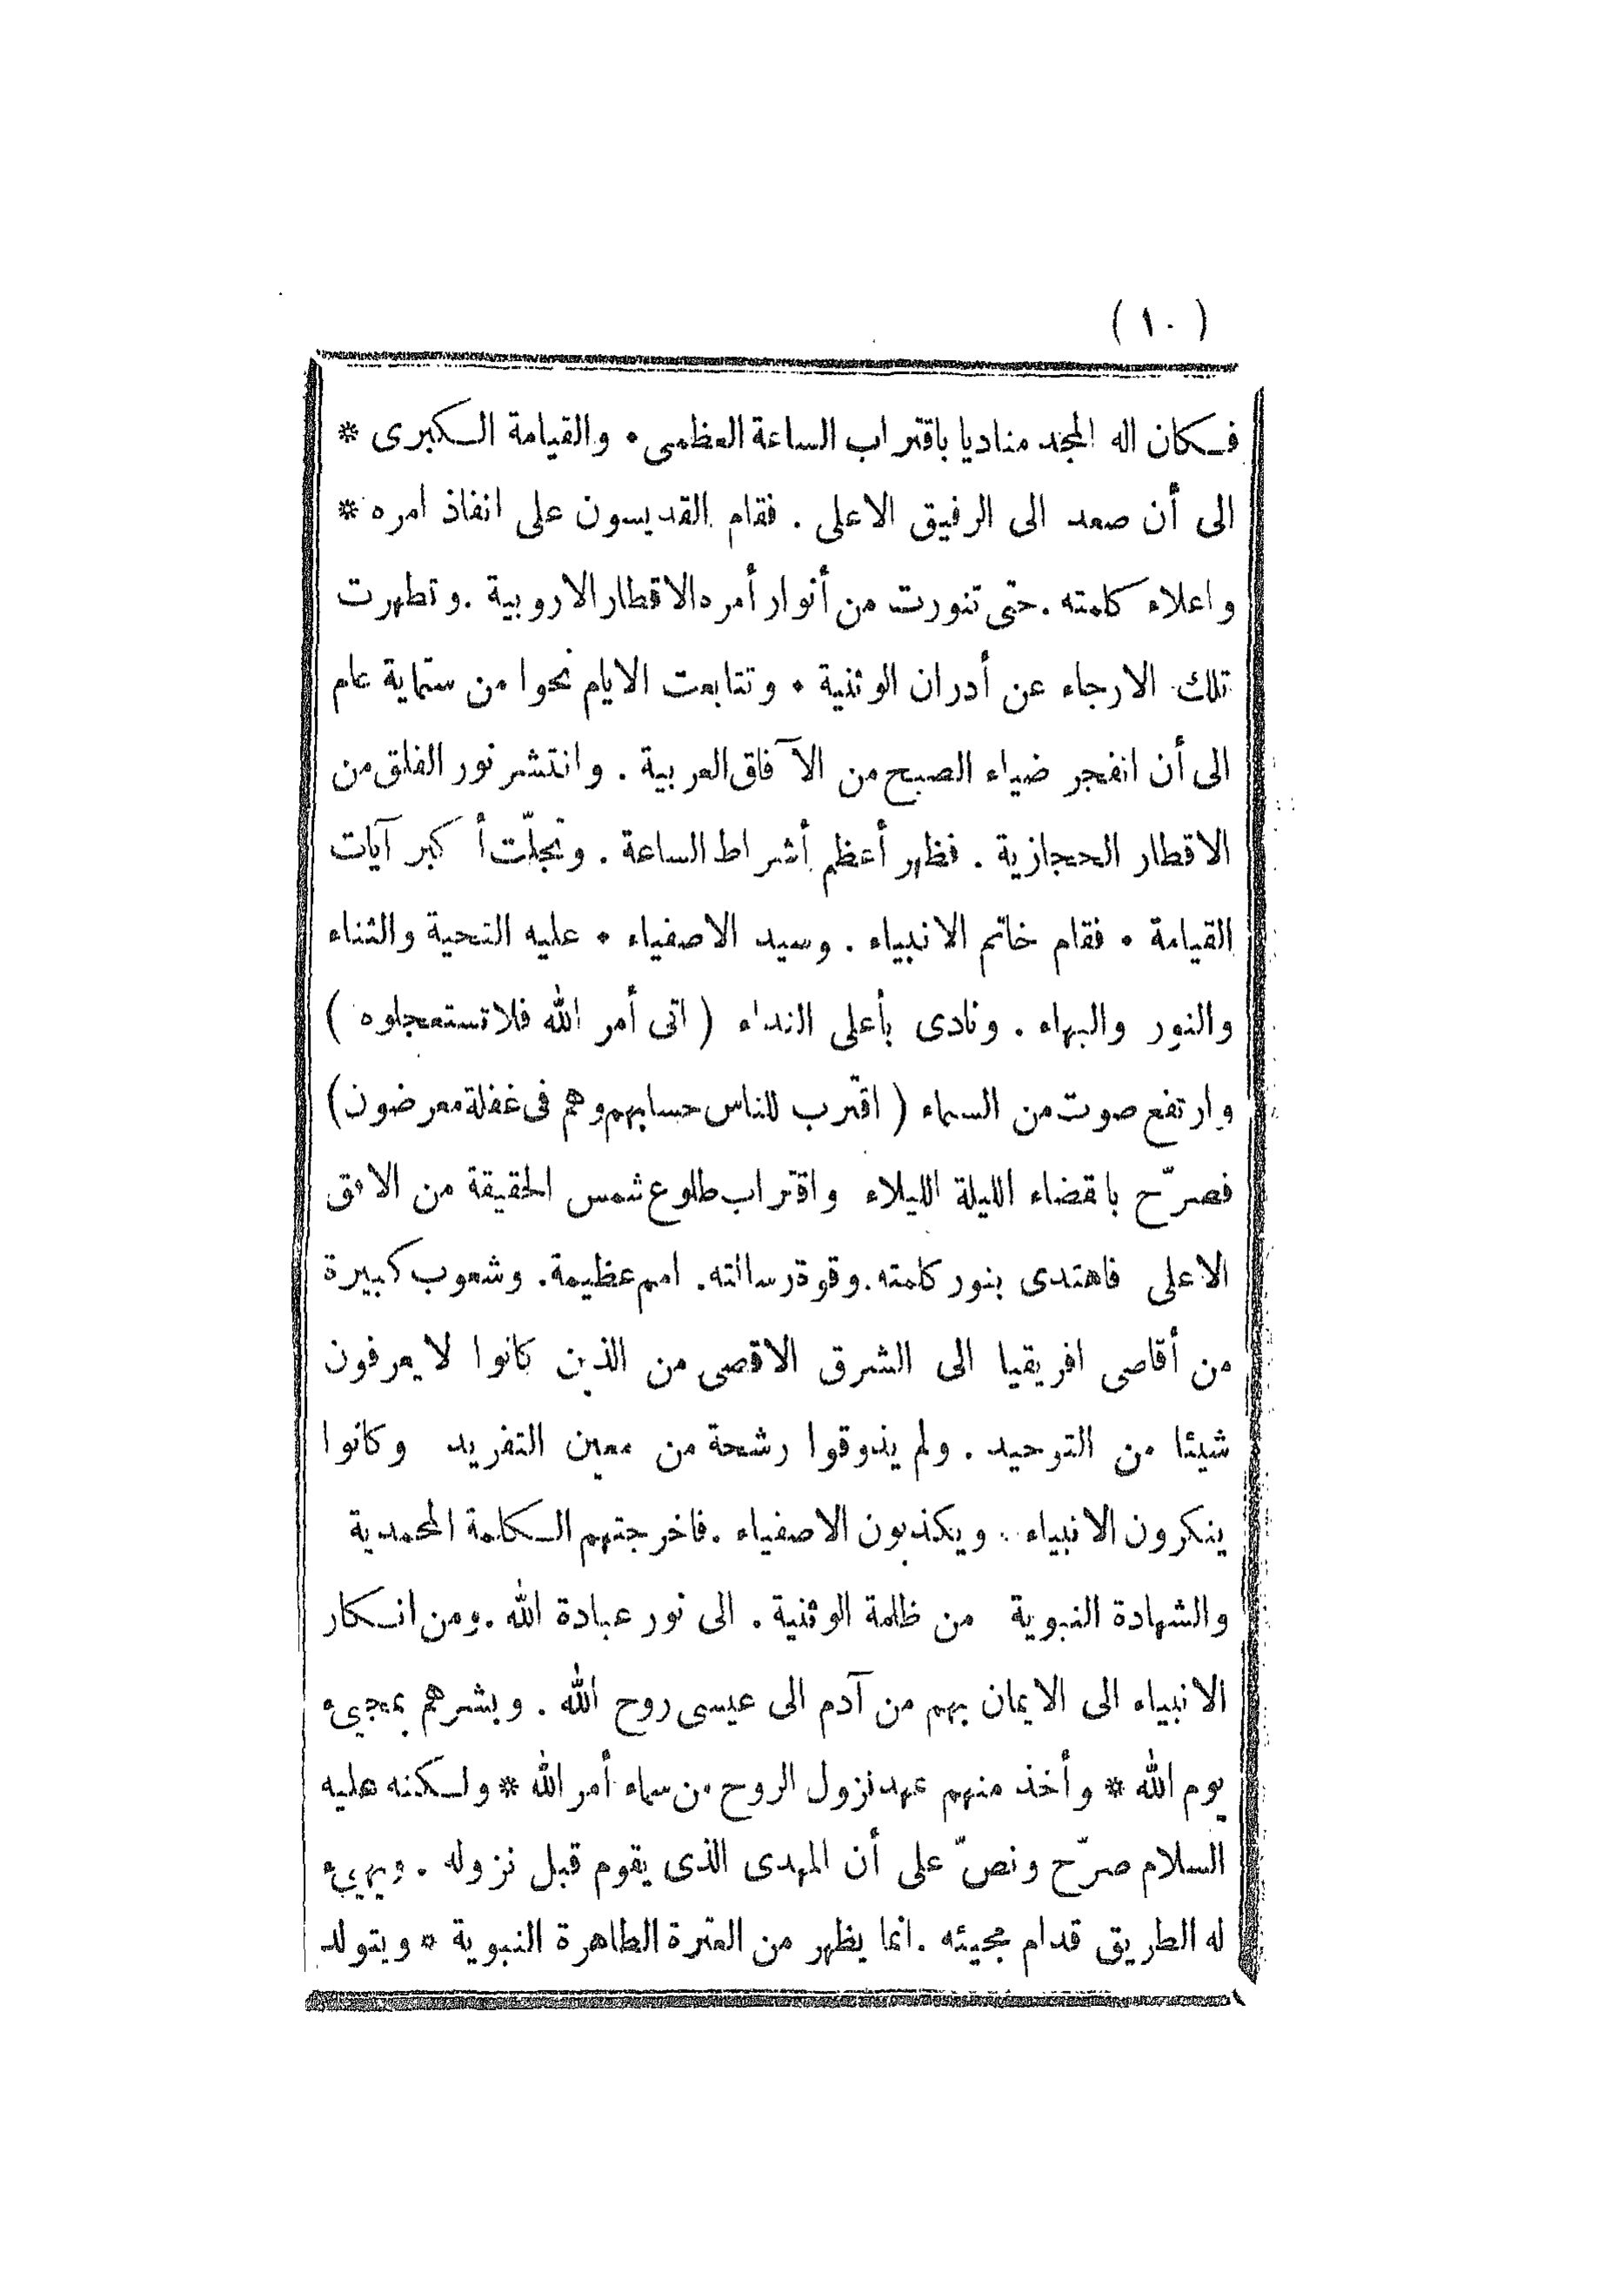 ( ١٠ )
فكان اله المجد مناديا باقتراب الساعة العظمى • والقيامة الكبرى *
الى أن صعد الى الرفيق الاعلى . فقام القديسون على انفاذ امره *
واعلاء كلمته . حتى تنورت من أنوار أمره الاقطار الاروبية . وتطهرت
تلك الارجاء عن أدران الوثنية • وتتابعت الايام نحوا من ستماية عام
الى أن انفجر ضياء الصبح من الآفاق العربية . وانتشر نور الفلق من
الاقطار الحجازية . فظهر أعظم أشراط الساعة . وتجلّت أكبر آيات
القيامة • فقام خاتم الانبياء . وسيد الاصفياء • عليه التحية والثناء
والنور والبهاء . ونادى بأعلى النداء ( اتى أمر الله فلا تستعجلوه )
وارتفع صوت من السماء ( اقترب للناس حسابهم وهم فى غفلة معرضون )
فصرّح باقضاء الليلة الليلاء واقتراب طلوع شمس الحقيقة من الافق
الاعلى فاهتدى بنور كلمته . وقوة رسالته . امم عظيمة . وشعوب كبيرة
من أقاصى افريقيا الى الشرق الاقصى من الذين كانوا لا يعرفون
شيئا من التوحيد . ولم يذوقوا رشحة من معين التفريد وكانوا
ينكرون الانبياء . ويكذبون الاصفياء . فاخرجتهم الكلمة المحمدية
والشهادة النبوية من ظلمة الوثنية . الى نور عبادة الله . ومن انكار
الانبياء الى الايمان بهم من آدم الى عيسى روح الله . وبشرهم بمجيء
يوم الله * وأخذ منهم عهد نزول الروح من سماء أمر الله * ولكنه عليه
السلام صرّح ونصّ على أن المهدى الذى يقوم قبل نزوله . ويهيء
له الطريق قدام مجيئه . انما يظهر من العترة الطاهرة النبوية * ويتولد